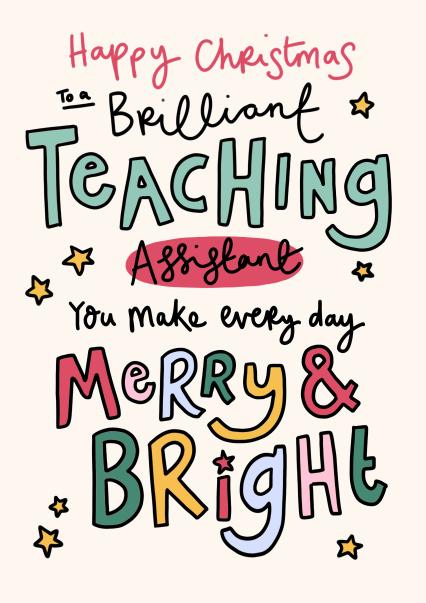 Happy Christmas
To a Brilliant
TeACHING
Assistant
You make every day
MeRRy &
BRigHt